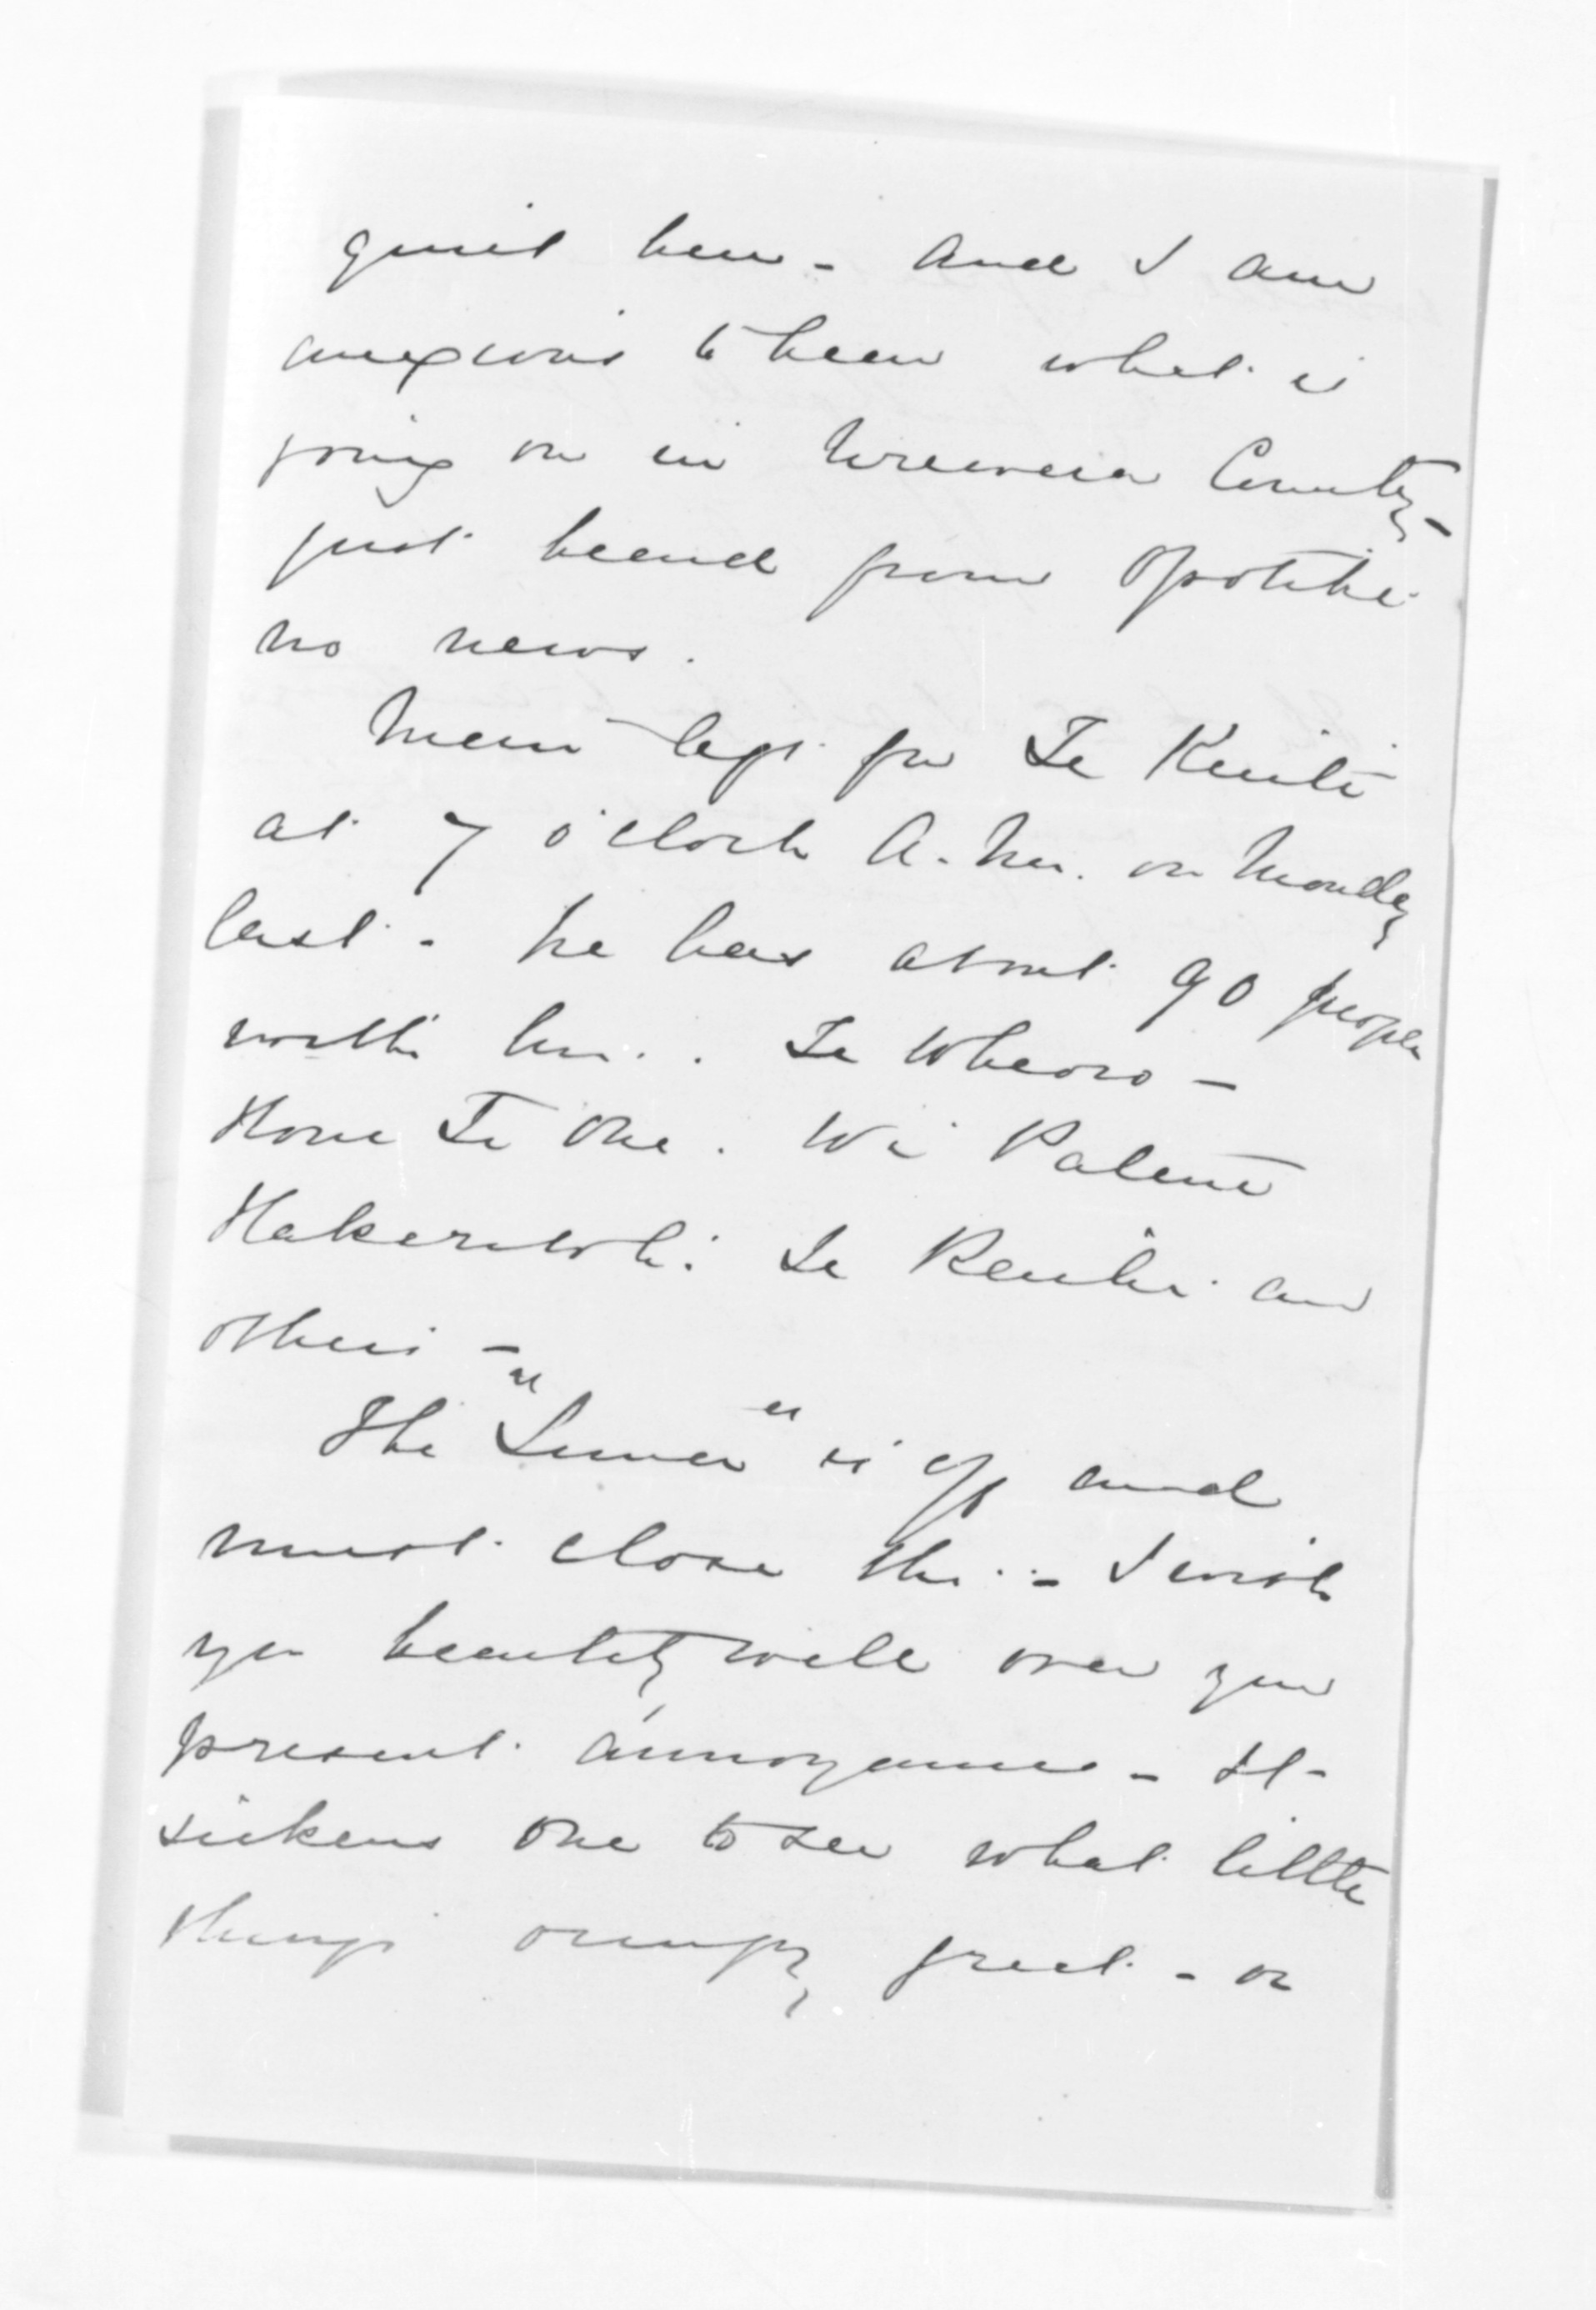 quiet here - And I am
anxious to hear what is
going on in Urewera Country -
just heard from Opotiki
no news.
Mair left for Te Kuiti
at 7 o'clock A.M. on Monday
last - he has about 90 people
with him. Te Wheoro -
Hone Te One. Wi Patene
Hakiriwhi. Te Reuhi and
others -
The "Luna" is off and
must close this - I wish
you heartily well over your
present annoyances - It
sickens one to see what little
things occupy great - or